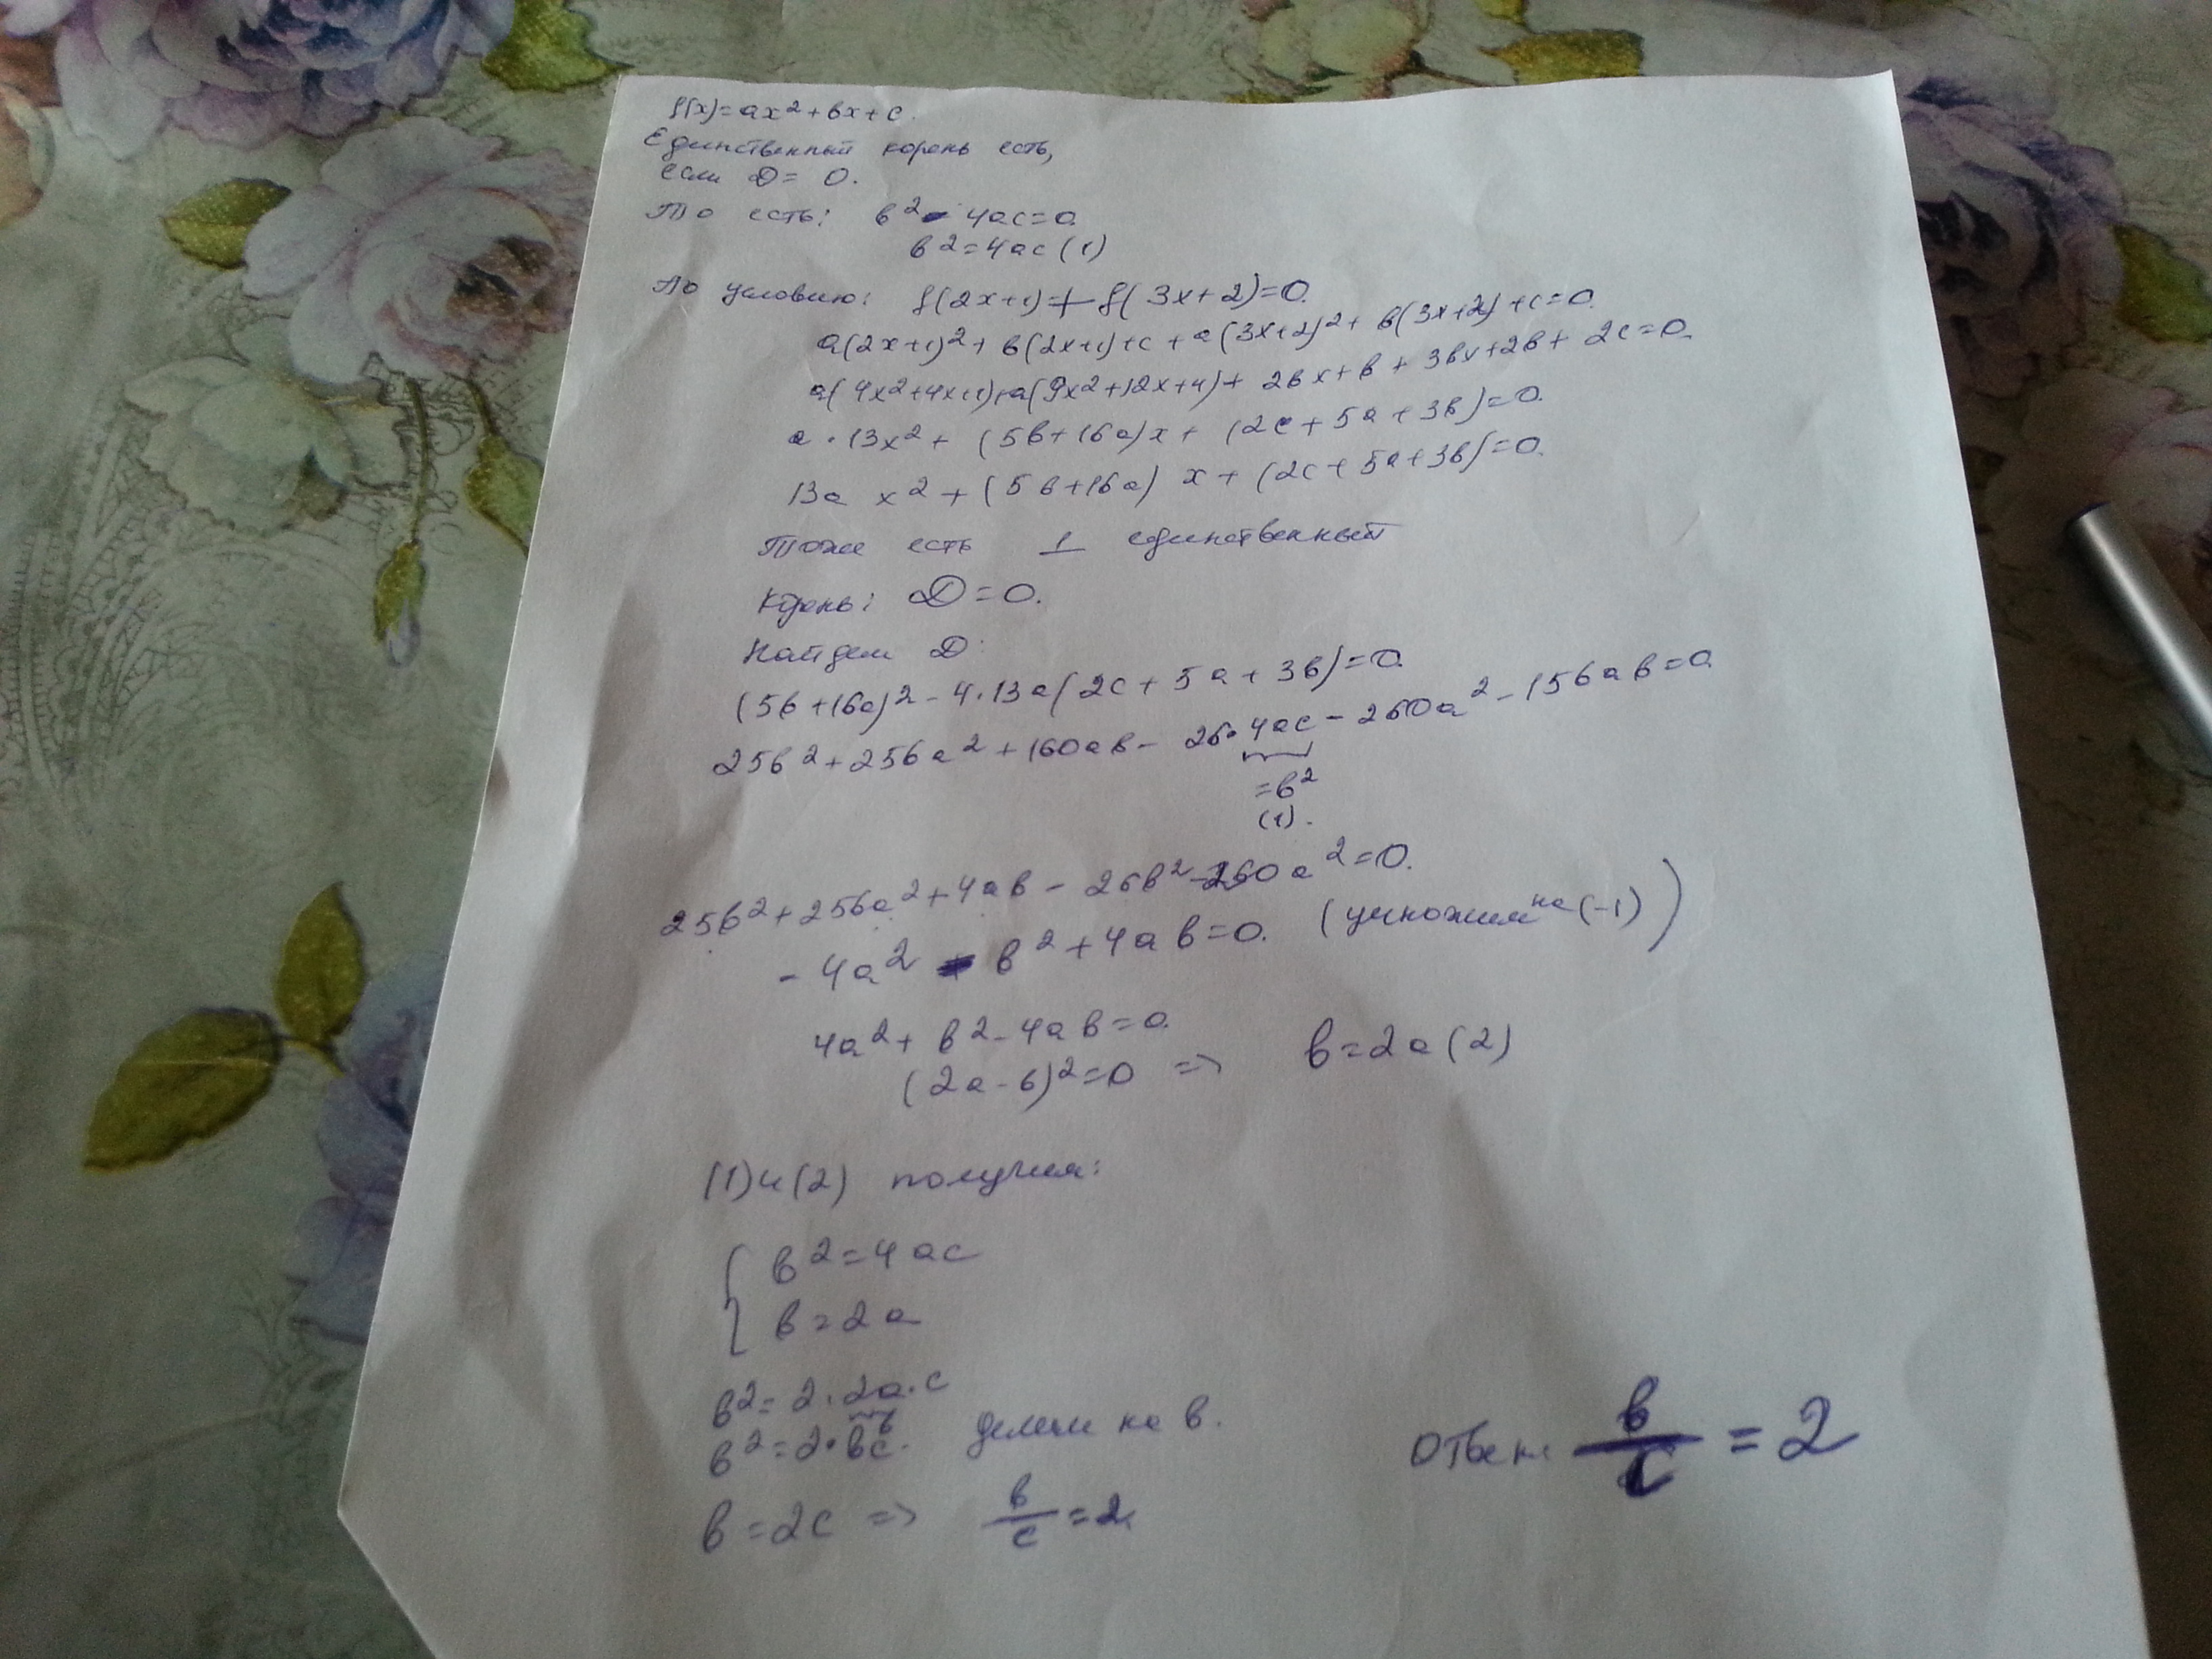 f(x)=ax²+bx+c.
Единственный корень есть,
если D= 0.
То есть: b²-4ac=0
b²=4ac (1)
По условию: f(2x+1)+f(3x+2)=0.
a(2x+1)²+b(2x+1)+c+a(3x+2)²+b(3x+2)+c=0.
a(4x²+4x+1)+a(9x²+12x+4)+2bx+b+3bx+2b+2c=0.
a·13x²+(5b+16a)x+(2c+5a+3b)=0.
13a x²+(5b+16a) x+(2c+5a+3b)=0.
Тоже есть 1 единственный
корень: D=0.
Найдем D:
(5b+16a)²-4·13a(2c+5a+3b)=0.
25b²+256a²+160ab-26·4ac-260a²-156ab=0
=b²
(1).
25b²+256a²+4ab-26b²-260a²=0.
-4a²-b²+4ab=0. (умножим на (-1))
4a²+b²-4ab=0.
(2a-b)²=0 => b=2a (2)
(1)и(2) получим:
{ b²=4ac
b=2a
b²=2·2a·c
b
b²=2·bc. делим на b.
b=2c => b/c=2.
Ответ: b/c=2